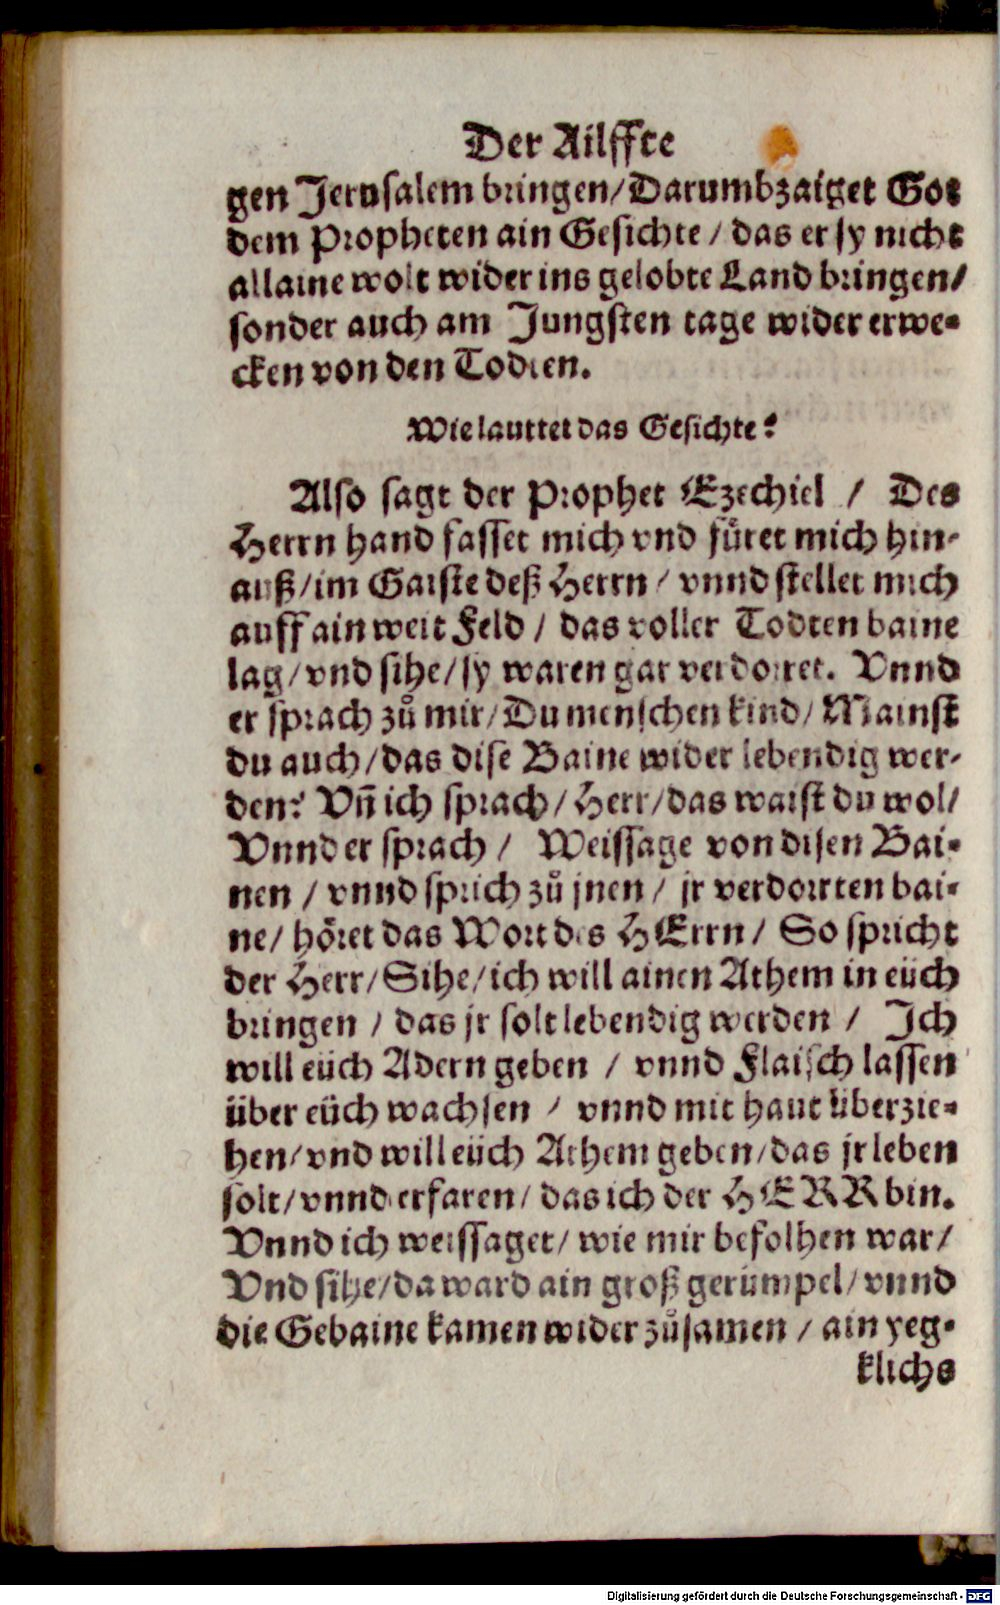 Der Ailffte
gen Jerusalem bringen/Darumb zaiget Got
dem Propheten ain Gesichte / das er sy nicht
allaine wolt wider ins gelobte Land bringen/
sonder auch am Jungsten tage wider erwe-
cken von den Todten.
Wie lauttet das Gesichte?
Also sagt der Prophet Ezechiel / Des
Herrn hand fasset mich vnd fuͤret mich hin-
auß/im Gaiste deß Herrn / vnnd stellet mich
auff ain weit Feld / das voller Todten baine
lag/vnd sihe/sy waren gar verdorret. Vnnd
er sprach zuͦ mir/Du menschen kind/Mainst
du auch/das dise Baine wider lebendig wer-
den? Vñ ich sprach/Herr/das waist du wol/
Vnnd er sprach / Weissage von disen Bai-
nen / vnnd sprich zuͦ jnen / jr verdorrten bai-
ne/ hoͤret das Wort des HErrn/ So spricht
der Herr/Sihe/ich will ainen Athem in eüch
bringen / das jr solt lebendig werden / Ich
will eüch Adern geben / vnnd Flaisch lassen
über eüch wachsen / vnnd mit haut überzie-
hen/vnd will eüch Athem geben/das jr leben
solt/vnnd erfaren/das ich der HERR bin.
Vnnd ich weissaget/ wie mir befolhen war/
Vnd sihe/da ward ain groß gerümpel/vnnd
die Gebaine kamen wider zuͦsamen / ain yeg-
klichs
Digitalisierung gefördert durch die Deutsche Forschungsgemeinschaft - DFG